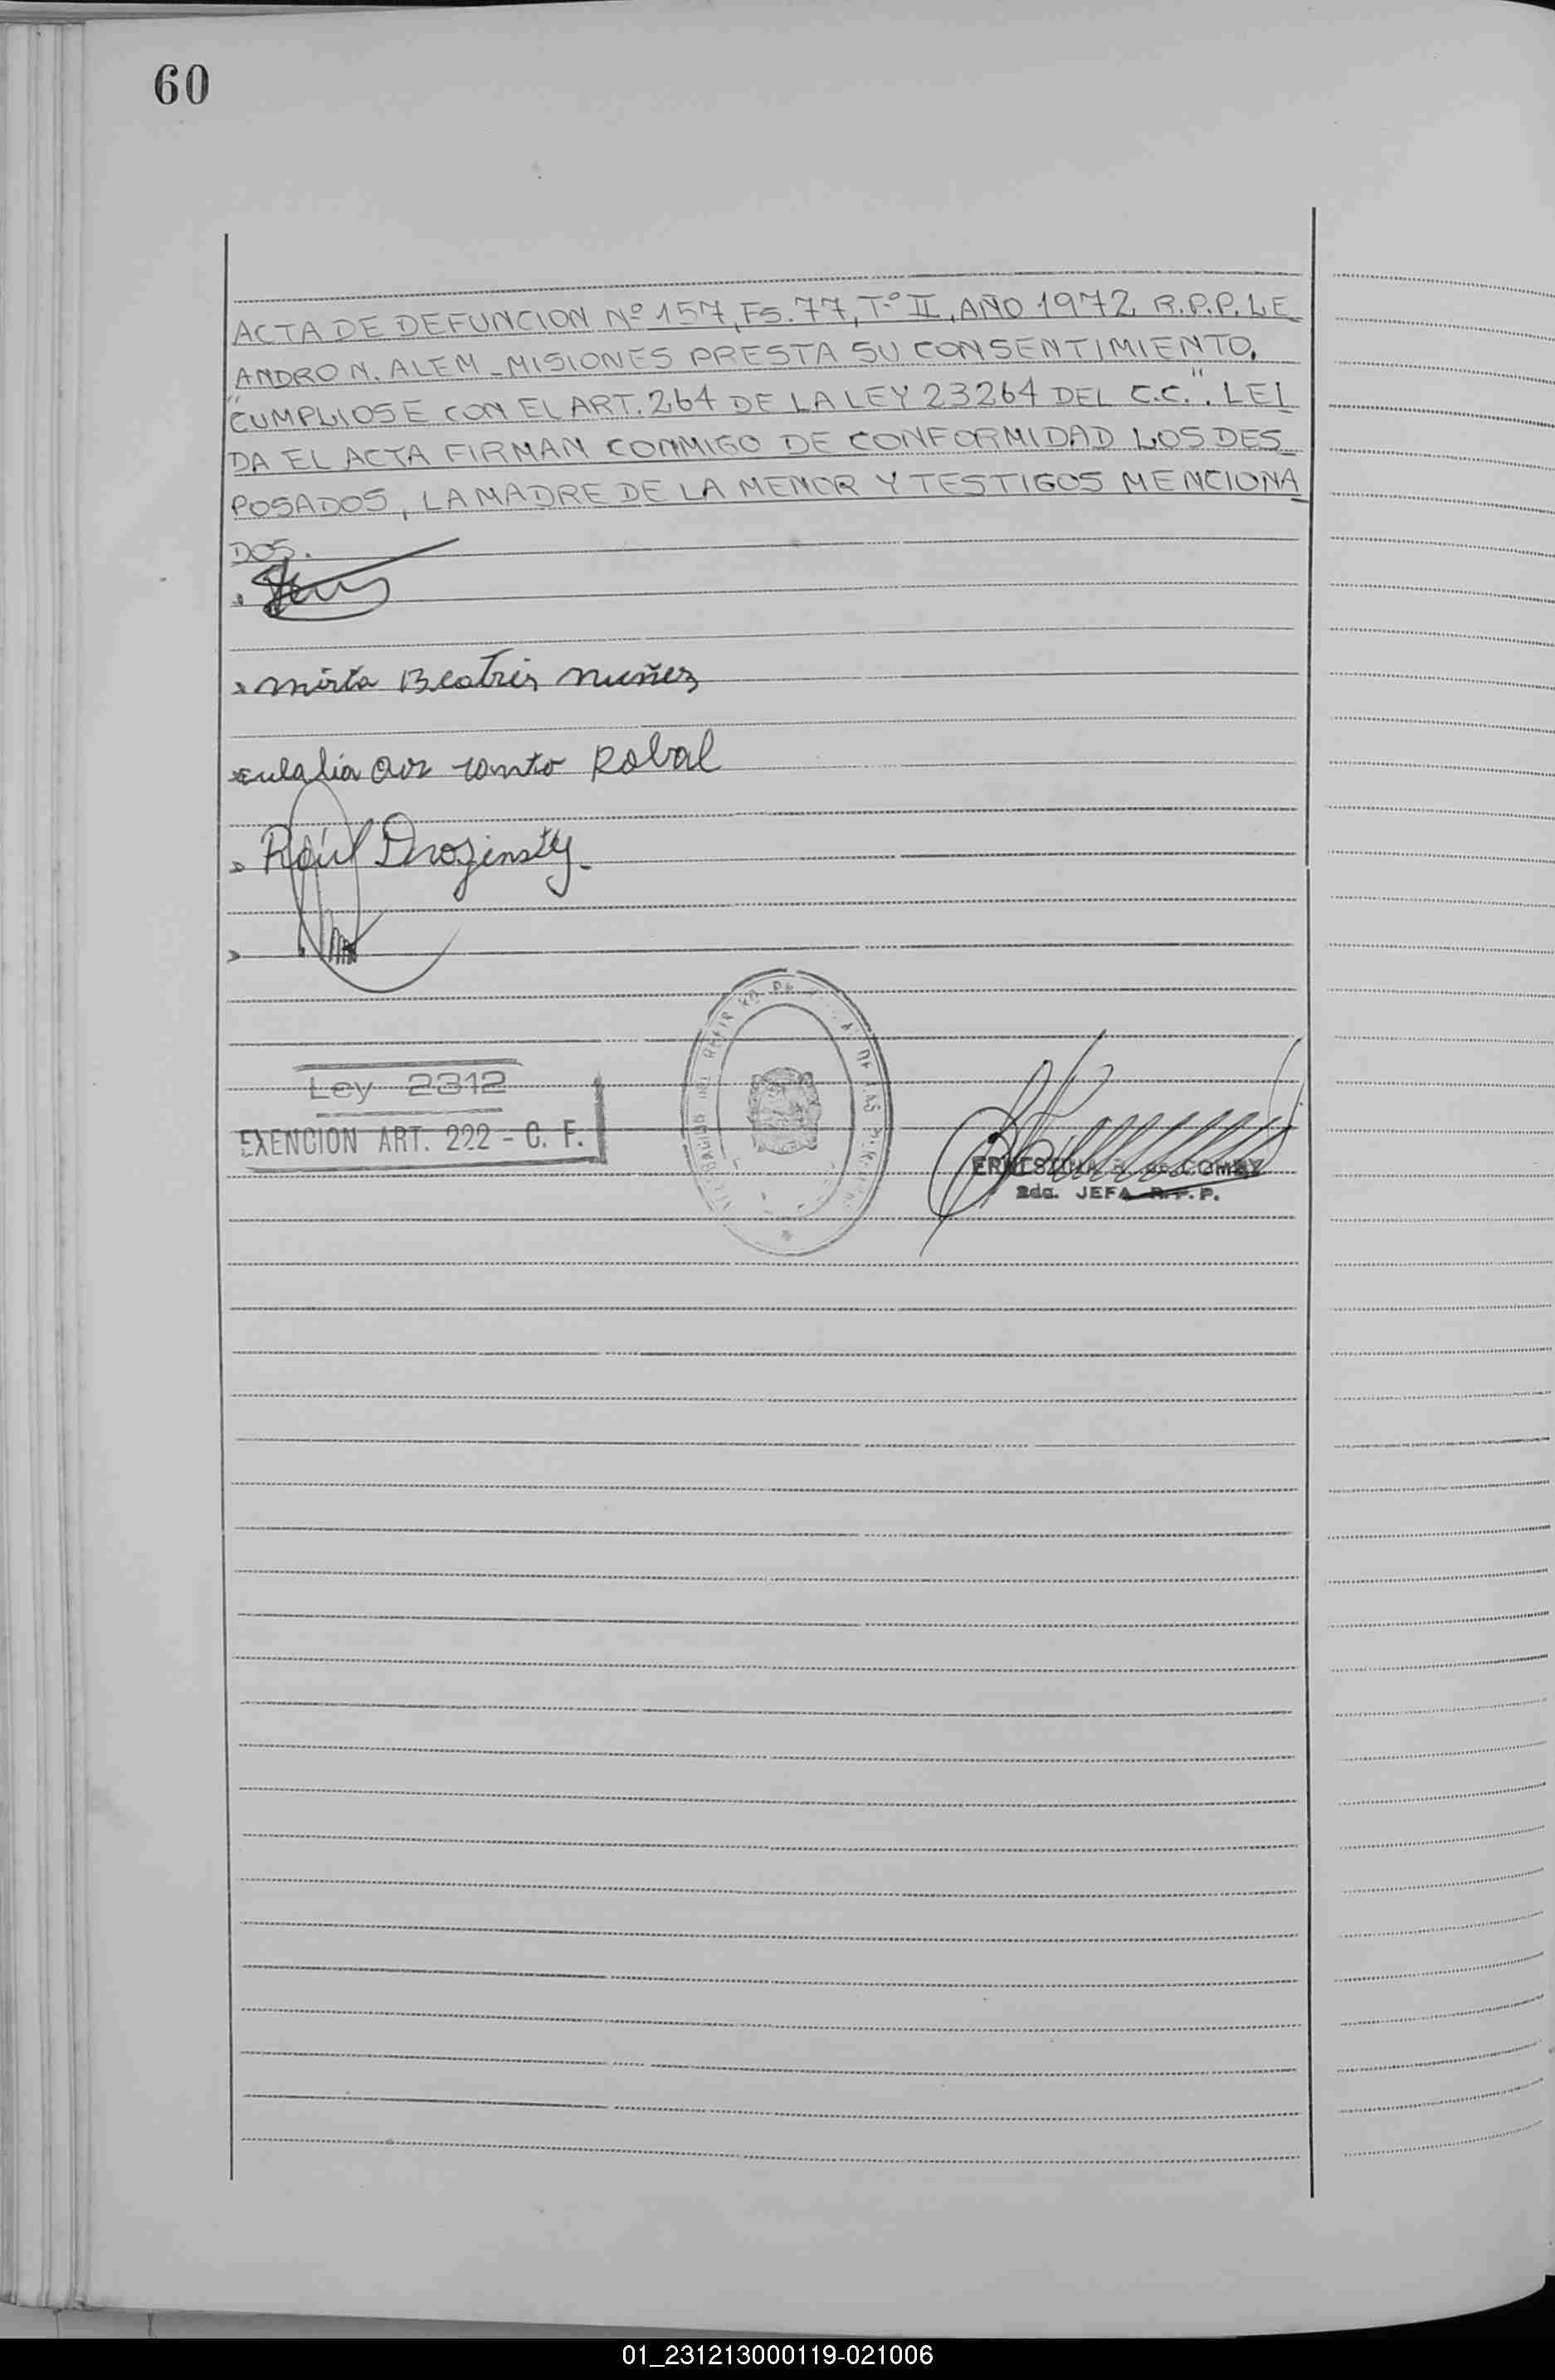 60
ACTA DE DEFUNCION Nº 157, Fs. 77, T.º II, AÑO 1972, R.P.P. LE
ANDRO N. ALEM - MISIONES PRESTA SU CONSENTIMIENTO.
"CUMPLIOSE CON EL ART. 264 DE LA LEY 23264 DEL C.C.". LEI
DA EL ACTA FIRMAN CONMIGO DE CONFORMIDAD LOS DES
POSADOS, LA MADRE DE LA MENOR Y TESTIGOS MENCIONA
DOS.
Mirta Beatris Nuñez
eulalia
Raúl Drozinsky
Ley 2312
EXENCION ART. 222 - C. F.
2da. JEFA R.P.P.
01_231213000119-021006